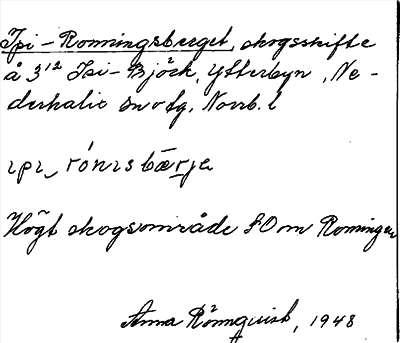 Ipi-Ronningsberget, skogsskifte
å 3¹² Ipi-Björk, Ytterbyn, Ne-
derkalix sn o fg, Norrb. l
Högt skogsområde SO om Roningen
Anna Rönnquist, 1948